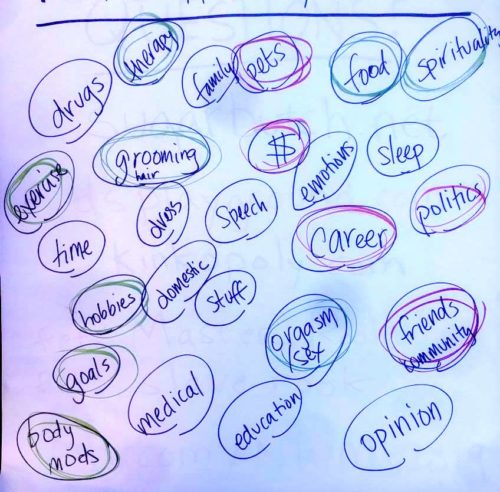 therapy
family
pets
food
spirituality
drugs
grooming
hair
$
emotions
sleep
exercise
dress
speech
career
politics
time
domestic
stuff
hobbies
orgasm
/sex
friends
community
goals
medical
education
opinion
body
mods